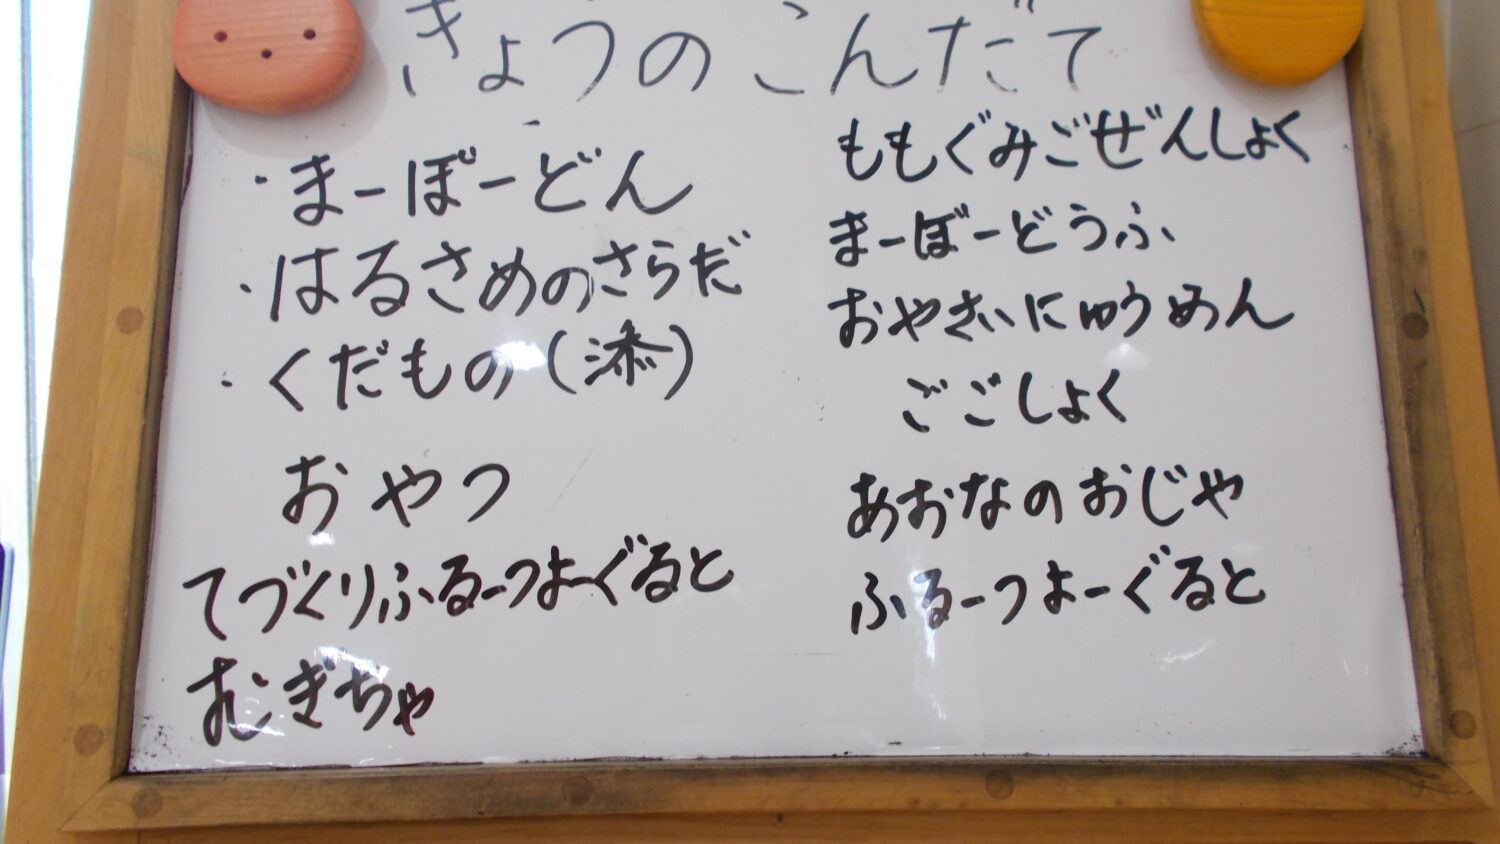 きょうのこんだて
・まーぼーどん
・はるさめのさらだ
・くだもの(添)
おやつ
てづくりふるーつよーぐると
むぎちゃ
ももぐみごぜんしょく
まーぼーどうふ
おやさいにゅうめん
ごごしょく
あおなのおじや
ふるーつよーぐると